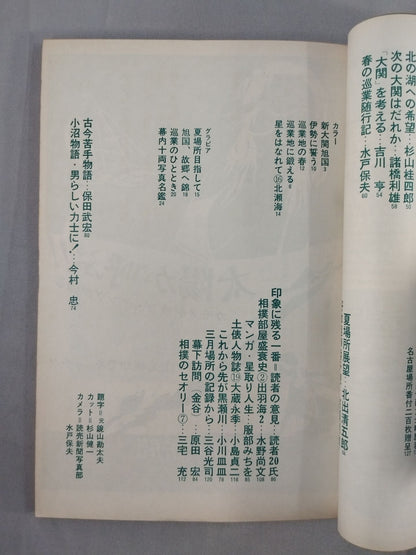 北の湖への希望…杉山桂四郎 50
次の大関はだれか…諸橋利雄 58
「大関」を考える…吉川 亨 54
春の巡業随行記…水戸保夫 60
夏場所展望…北出清五郎
名古屋場所番付二百枚贈呈 127
カラー
新大関旭国 3
伊勢に誓う 10
巡業地の春 12
巡業地に鍛える 6
星をはなれて⑯北瀬海 14
グラビア
夏場所目指して 15
旭国、故郷へ錦 18
巡業のひととき 20
幕内十両写真名鑑 24
古今苦手物語…保田武宏 80
小沼物語・男らしい力士に！…今村 忠 74
印象に残る一番＝読者の意見…読者20氏 86
相撲部屋盛衰史②出羽海2…水野尚文 108
マンガ・星取り人生…服部みちを 85
土俵人物誌⑲大蔵永季…小島貞二 116
これから先が黒瀬川…小川皿皿 78
三月場所の記録から…三谷光司 120
幕下訪問（金谷）…原田 宏 84
相撲のセオリー⑦…三宅 充 112
題字＝元鏡山勘太夫
カット＝杉山健一
カメラ＝読売新聞写真部
水戸保夫